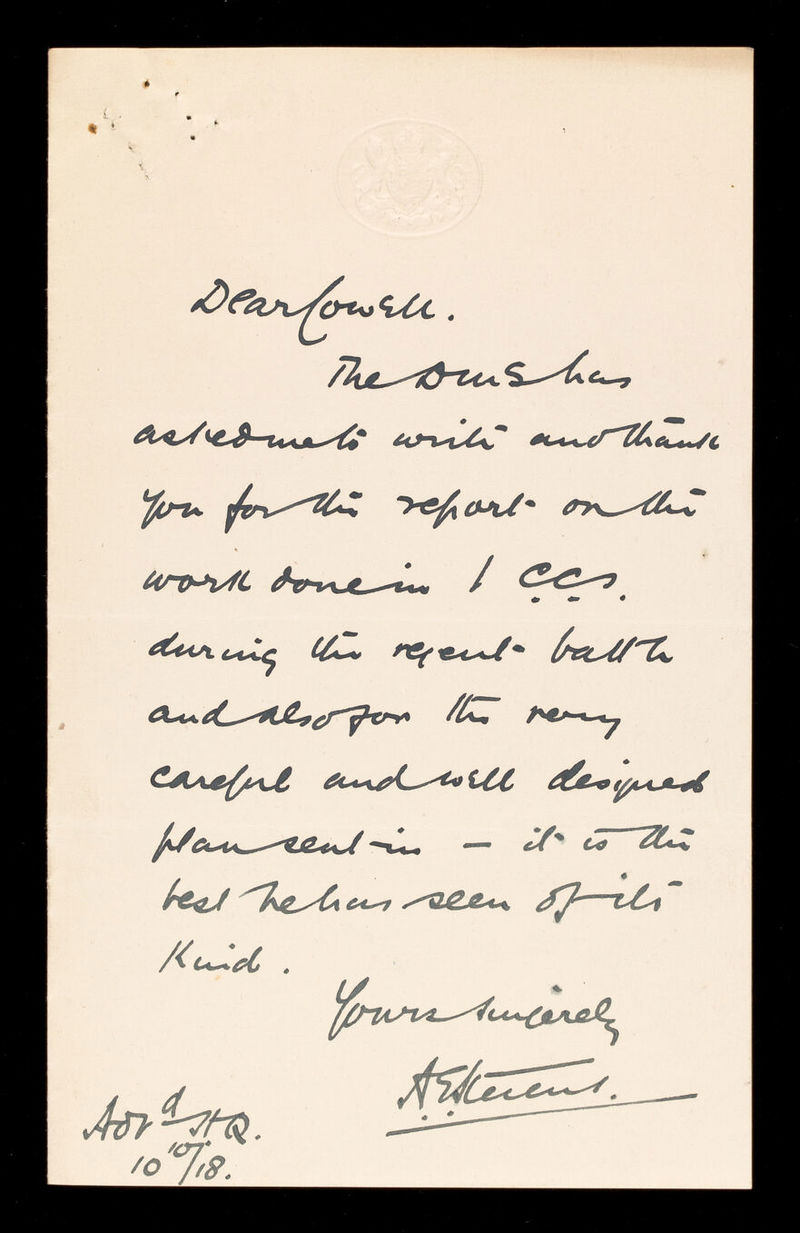 Dear Cowell.
The DMS has
asked me to write and thank
you for the report on the
work done in 1 CCS.
during the recent battle
and also for the very
careful and well designed
plan sent in - it is the
best he has seen of its
kind.
Yours sincerely
A.E. Stevens.
Advd HQ.
10/10/18.